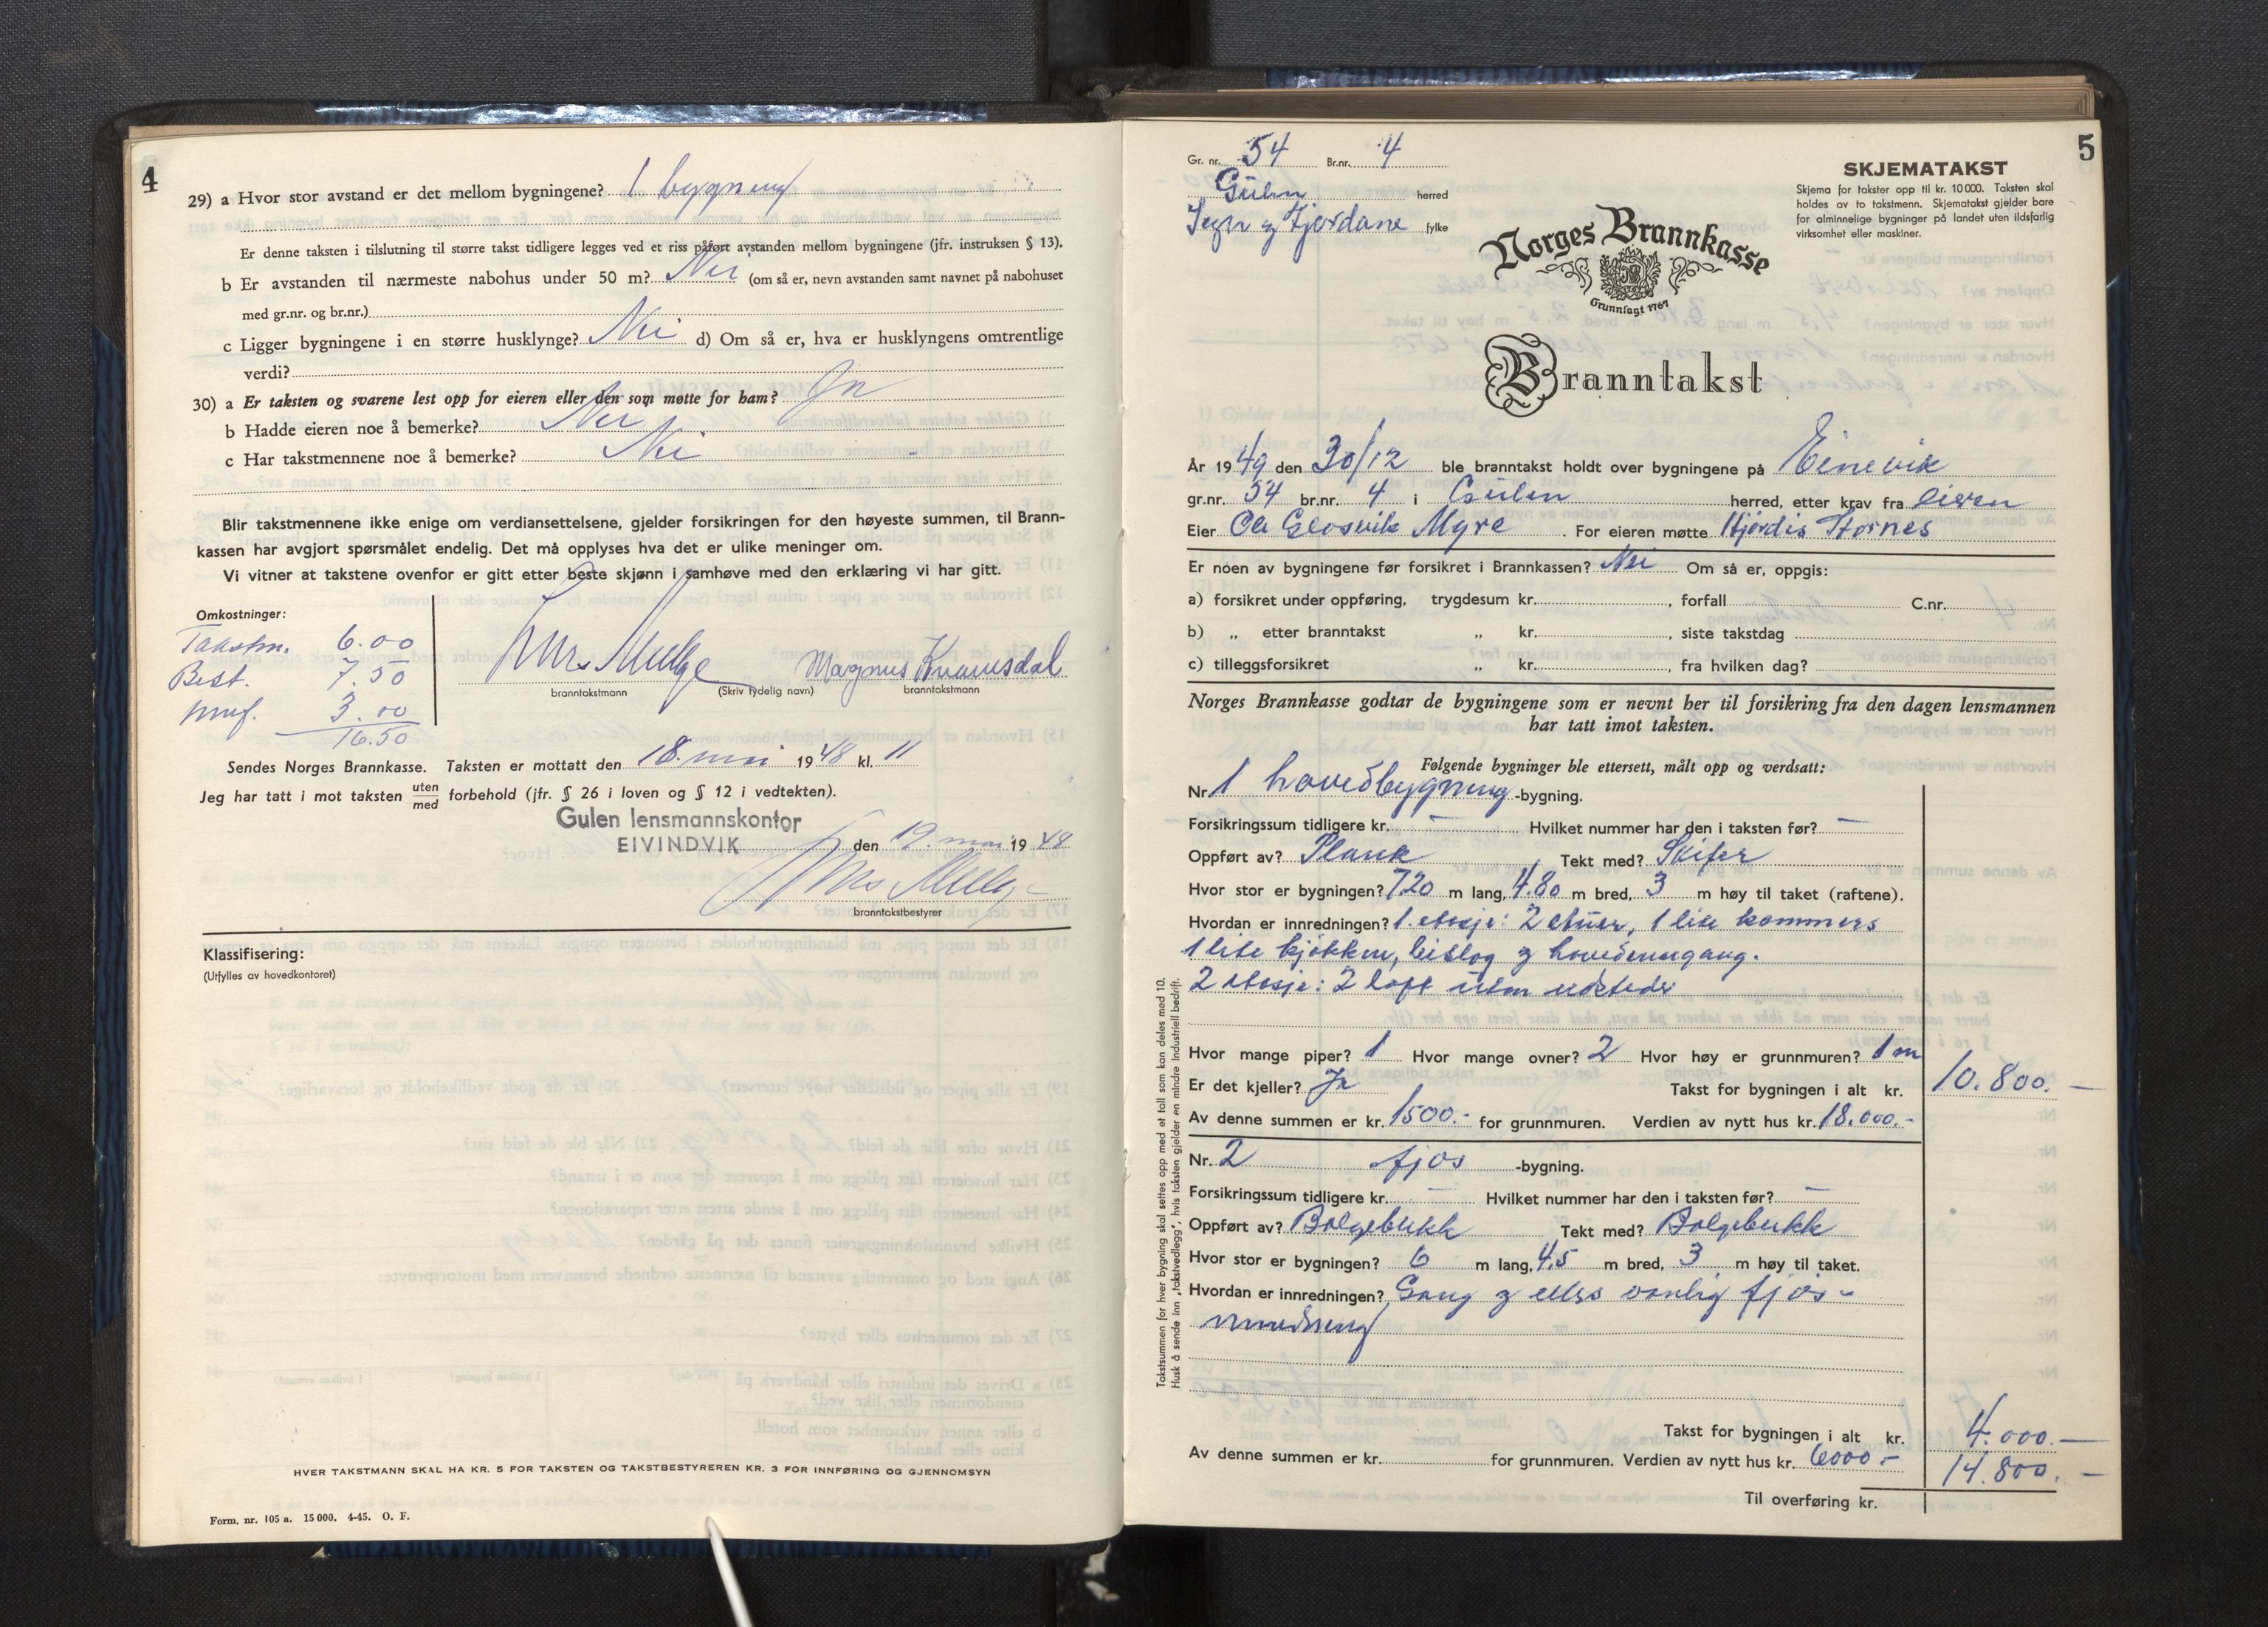 4
29) a Hvor stor avstand er det mellom bygningene? 1 bygning
Er denne taksten i tilslutning til større takst tidligere legges ved et riss påført avstanden mellom bygningene (jfr. instruksen § 13).
b Er avstanden til nærmeste nabohus under 50 m? Nei (om så er, nevn avstanden samt navnet på nabohuset
med gr.nr. og br.nr.)
c Ligger bygningene i en større husklynge? Nei d) Om så er, hva er husklyngens omtrentlige
verdi?
30) a Er taksten og svarene lest opp for eieren eller den som møtte for ham? Ja
b Hadde eieren noe å bemerke? Nei
c Har takstmennene noe å bemerke? Nei
Blir takstmennene ikke enige om verdiansettelsene, gjelder forsikringen for den høyeste summen, til Brann-
kassen har avgjort spørsmålet endelig. Det må opplyses hva det er ulike meninger om.
Vi vitner at takstene ovenfor er gitt etter beste skjønn i samhøve med den erklæring vi har gitt.
Omkostninger:
Takstm. 6.00
Best. 7.50
3.00
16.50
Magnus Knarvsdal
branntakstmann (Skriv tydelig navn) branntakstmann
Sendes Norges Brannkasse. Taksten er mottatt den 18. mai 1948 kl. 11
Jeg har tatt i mot taksten uten/med forbehold (jfr. § 26 i loven og § 12 i vedtekten).
Gulen lensmannskontor
EIVINDVIK den 19. mai 1948
branntakstbestyrer
Klassifisering:
(Utfylles av hovedkontoret)
HVER TAKSTMANN SKAL HA KR. 5 FOR TAKSTEN OG TAKSTBESTYREREN KR. 3 FOR INNFØRING OG GJENNOMSYN
Form. nr. 105 a. 15 000. 4-45. O. F.
5
Gr. nr. 54 Br.nr. 4
Gulen herred
Sogn og Fjordane fylke
SKJEMATAKST
Skjema for takster opp til kr. 10 000. Taksten skal
holdes av to takstmenn. Skjematakst gjelder bare
for alminnelige bygninger på landet uten ildsfarlig
virksomhet eller maskiner.
Norges Brannkasse
Grunnlagt 1767
Branntakst
År 1949 den 30/12 ble branntakst holdt over bygningene på Einevik
gr.nr. 54 br.nr. 4 i Gulen herred, etter krav fra eieren
Eier Ola Glosvik Myre For eieren møtte Hjørdis Stornes
Er noen av bygningene før forsikret i Brannkassen? Nei Om så er, oppgis:
a) forsikret under oppføring, trygdesum kr. , forfall C.nr.
b) „ etter branntakst „ kr. , siste takstdag
c) tilleggsforsikret „ kr. , fra hvilken dag?
Norges Brannkasse godtar de bygningene som er nevnt her til forsikring fra den dagen lensmannen
har tatt imot taksten.
Følgende bygninger ble ettersett, målt opp og verdsatt:
Nr 1 hovedbygning -bygning.
Forsikringssum tidligere kr. — Hvilket nummer har den i taksten før? —
Oppført av? Plank Tekt med? Skifer
Hvor stor er bygningen? 7.20 m lang, 4.80 m bred, 3 m høy til taket (raftene).
Hvordan er innredningen? 1. etasje: 2 stuer, 1 lite kammers
1 lite kjøkken, bislag og hovedinngang.
2 etasje: 2 loft uten ildsteder
Hvor mange piper? 1 Hvor mange ovner? 2 Hvor høy er grunnmuren? 1 m
Er det kjeller? Ja Takst for bygningen i alt kr. 10.800.—
Av denne summen er kr. 1500.- for grunnmuren. Verdien av nytt hus kr. 18.000.-
Nr. 2 fjos -bygning.
Forsikringssum tidligere kr. — Hvilket nummer har den i taksten før? —
Oppført av? Bølgeblikk Tekt med? Bølgeblikk
Hvor stor er bygningen? 6 m lang, 4.5 m bred, 3 m høy til taket.
Hvordan er innredningen? Gang og ellers vanlig fjos-
innredning
Takst for bygningen i alt kr. 4.000.—
Av denne summen er kr. for grunnmuren. Verdien av nytt hus kr. 6000.-
14.800.—
Til overføring kr.
Takstsummen for hver bygning skal settes opp med et tall som kan deles med 10.
Husk å sende inn „takstvedlegg", hvis taksten gjelder en mindre industriell bedrift.